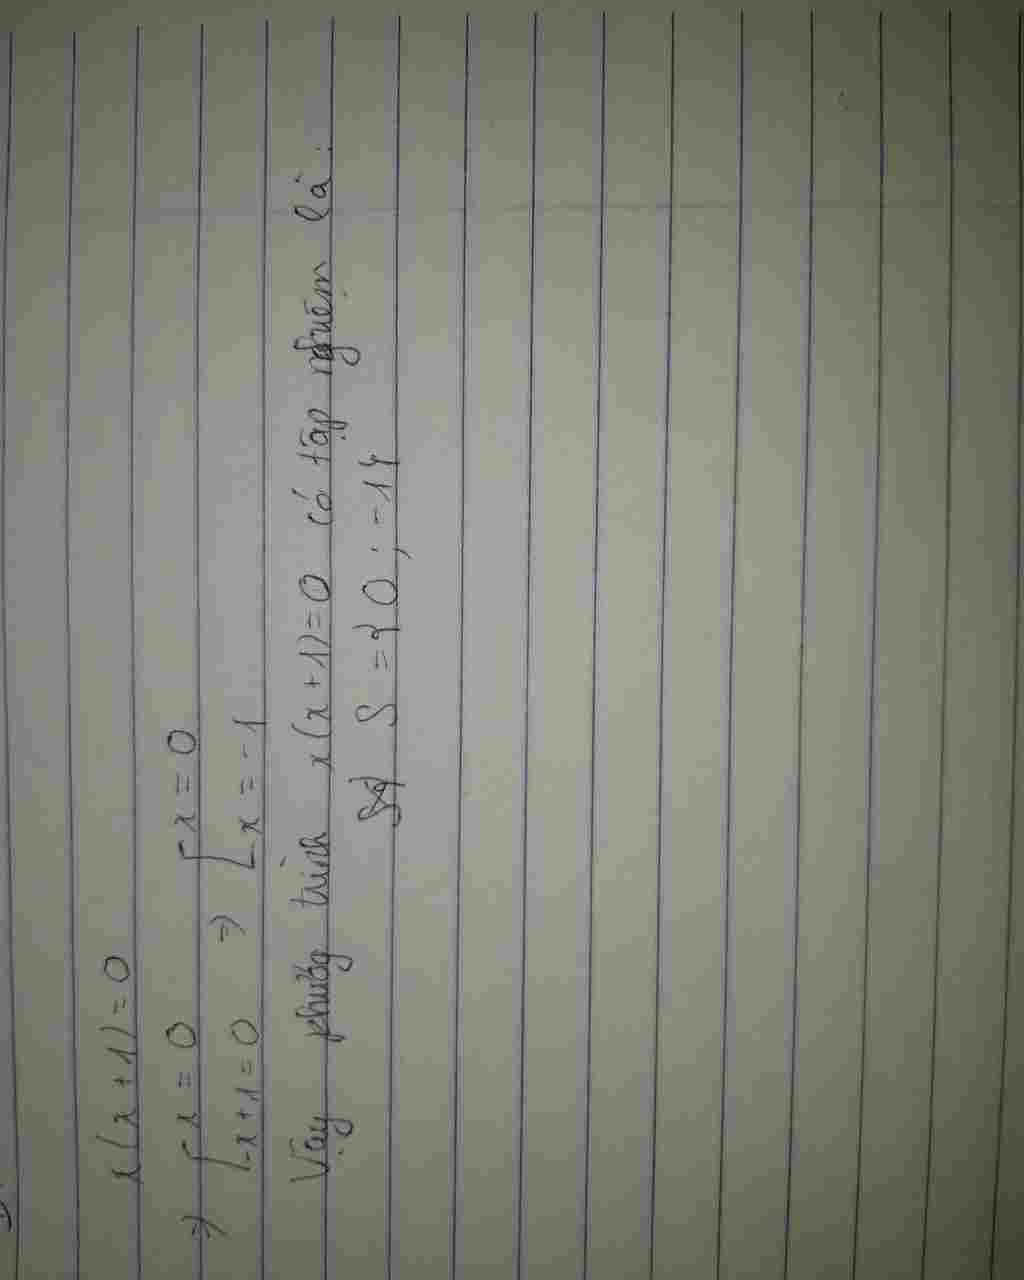 x(x+1)=0
=> [ x = 0 => [ x = 0
[ x+1=0 [ x = -1
Vậy phương trình x(x+1)=0 có tập nghiệm là:
S = {0; -1}